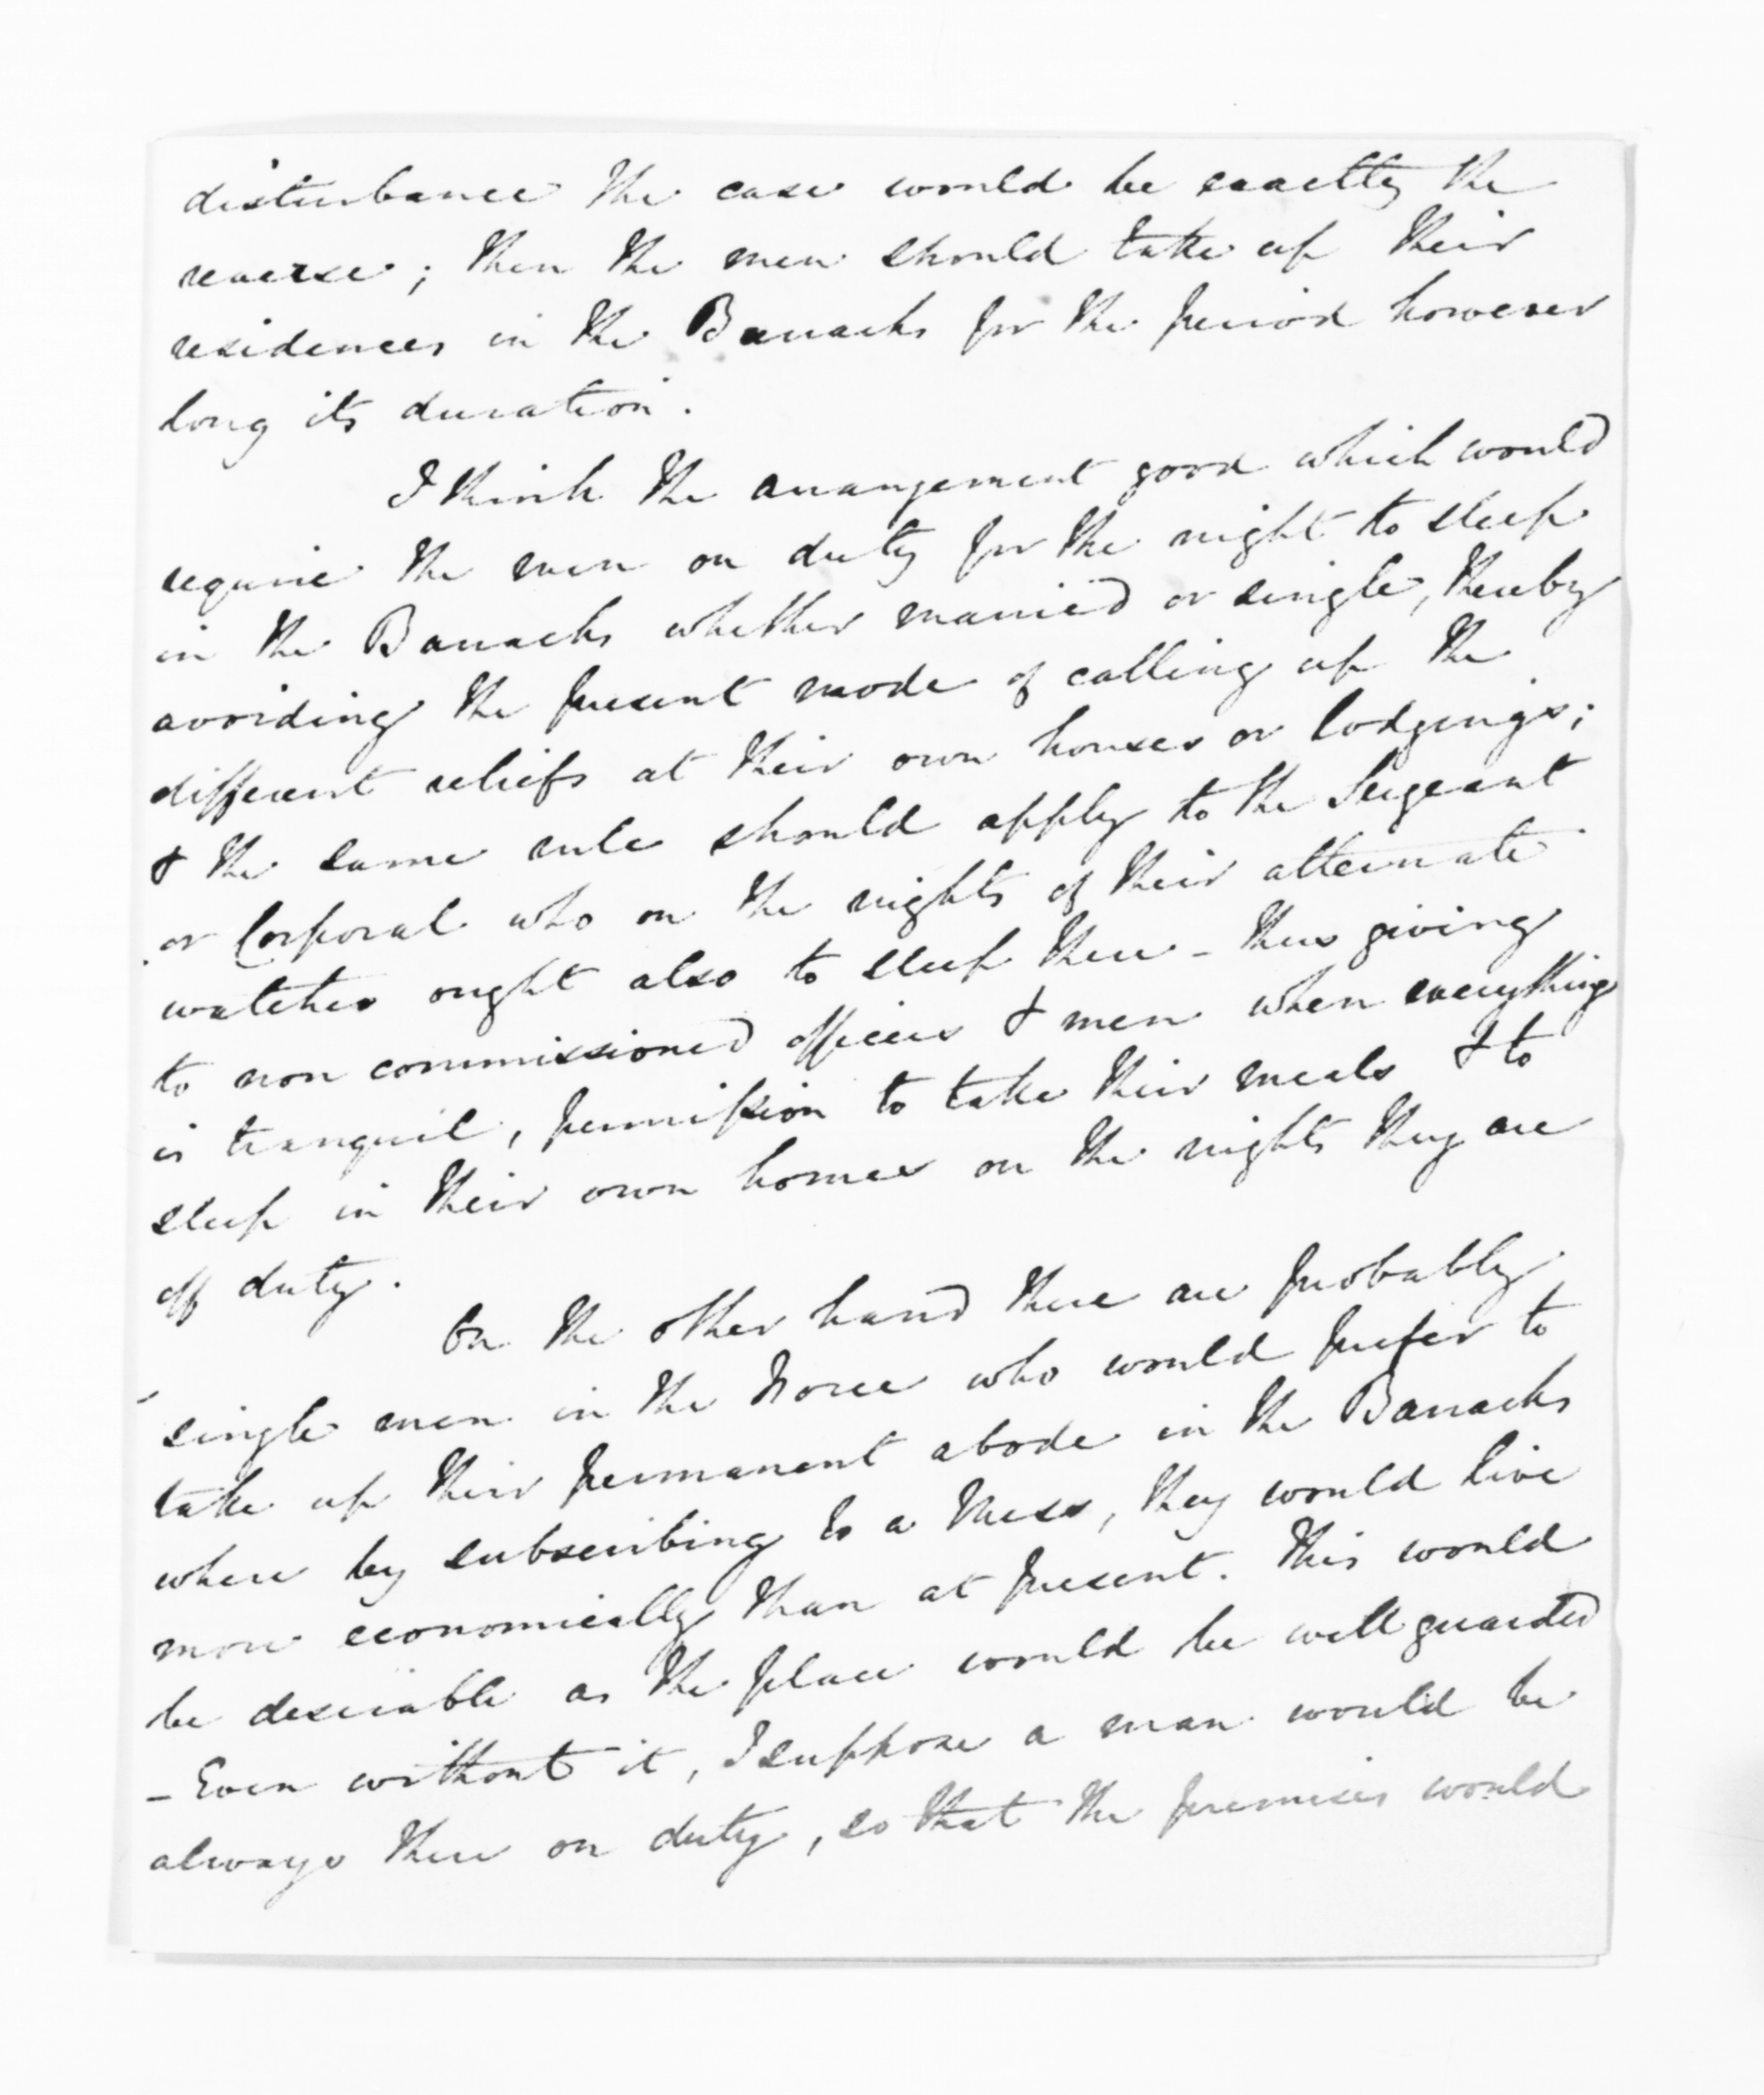 disturbance the case would be exactly the
reverse; then the men should take up their
residences in the Barracks for the period however
long its duration.
I think the arrangement good which would
require the men on duty for the night to sleep
in the Barracks whether married or single, thereby
avoiding the present mode of calling up the
different reliefs at their own houses or lodgings;
& the same rule should apply to the Sergeant
or Corporal who on the nights of their alternate
watches ought also to sleep there - thus giving
to non commissioned officers & men when everything
is tranquil, permission to take their meals & to
sleep in their own homes on the nights they are
off duty.
On the other hand there are probably
single men in the Force who would prefer to
take up their permanent abode in the Barracks
where by subscribing to a Mess, they would live
more economically than at present. This would
be desirable as the place would be well guarded
- Even without it, I suppose a man would be
always there on duty, so that the premises would